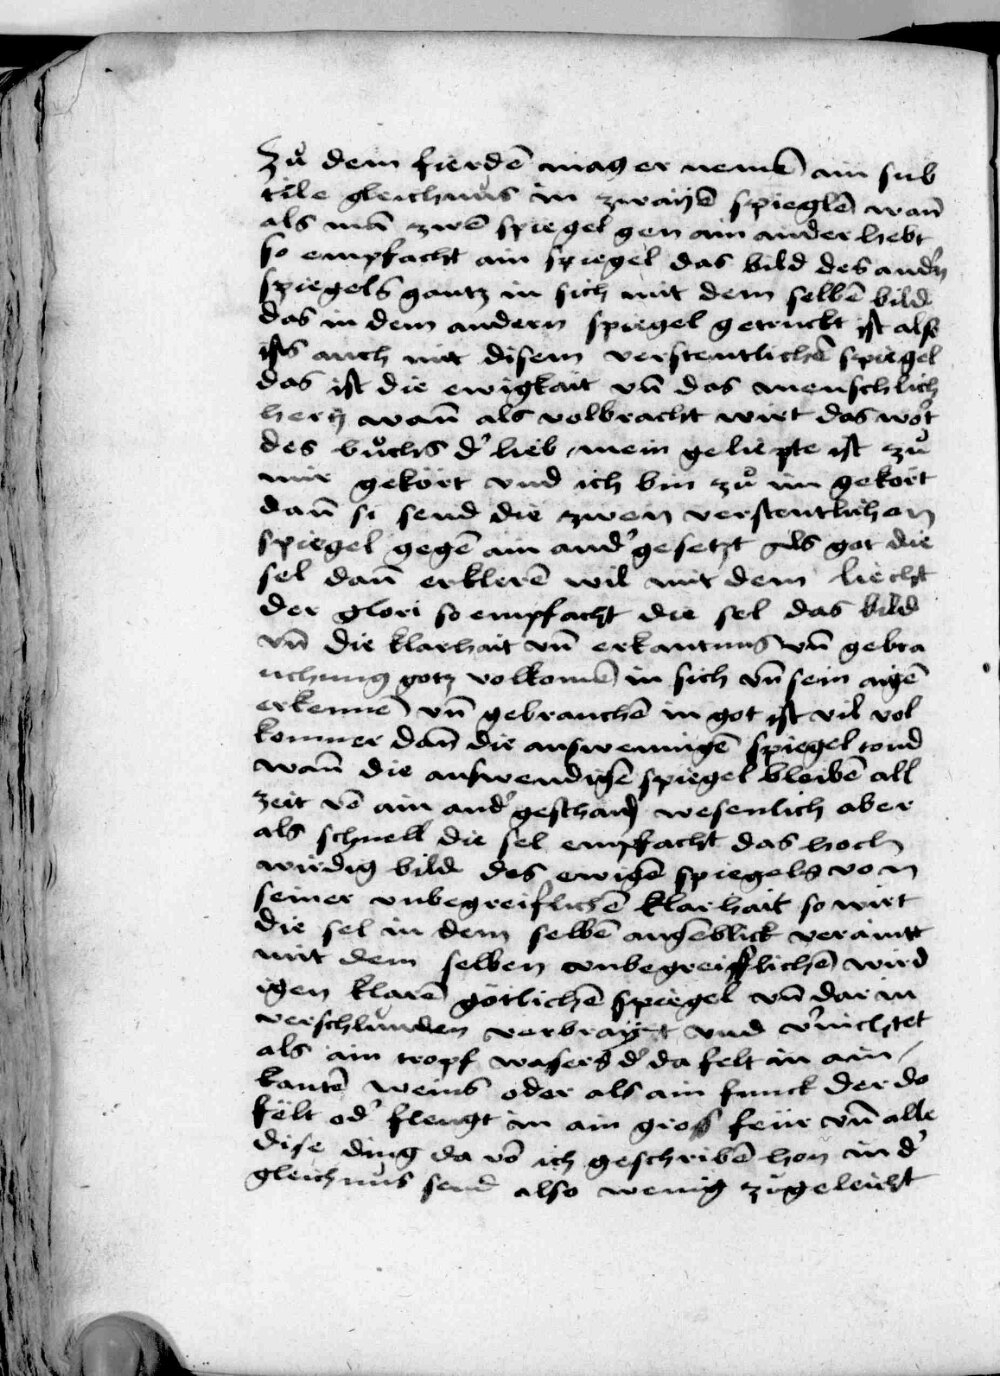 Zů dem fierdē mag er nemē ain sub
tile gleichnüs in zwayē spieglē wañ
als mā zwē spiegel gen ain ander hebt
so empfacht ain spiegel das bild des andrn
spiegels gantz in sich mit dem selbē bild
das in dem andern spiegel getruckt ist also
ists auch mit disem verstentlichē spiegel
das ist die ewigkait vñ das menschlich
hertz wañ als volbracht wirt das wort
des bůchs d' lieb mein geliepte ist zů
mir gekört vnd ich bin zů im gekört
dañ so send die zwen verstentlichen
spiegel gegē ain and' gesetzt als got die
sel dañ erklerē wil mit dem liecht
der glori so empfacht die sel das bild
vñ die klarhait vñ erkantnus vñ gebra
uchung gotz volkomē in sich vñ sein aigē
erkennē vñ gebrauchē in got ist vil vol
komner dañ die ausweningē spiegel tond
wañ die auswendigē spiegel bleibē all
zeit vō ain and' geschaid wesenlich aber
als schnell die sel empfacht das hoch
wirdig bild des ewigē spiegels von
seiner vnbegreiflichē klarhait so wirt
die sel in dem selbē augēblick veraintt
mit dem selben vnbegreifflichē wird
igen klarē götlichē spiegel vñ dar in
verschlunden verbraÿt vnd v'nichtet
als ain tropf wasers d' da felt in ain
kantē weins oder als ain funck der do
felt od' fleugt in ain gros feür vñ alle
dise ding da vō ich geschribē hon in d'
gleichnüs send also wenig zugeleicht